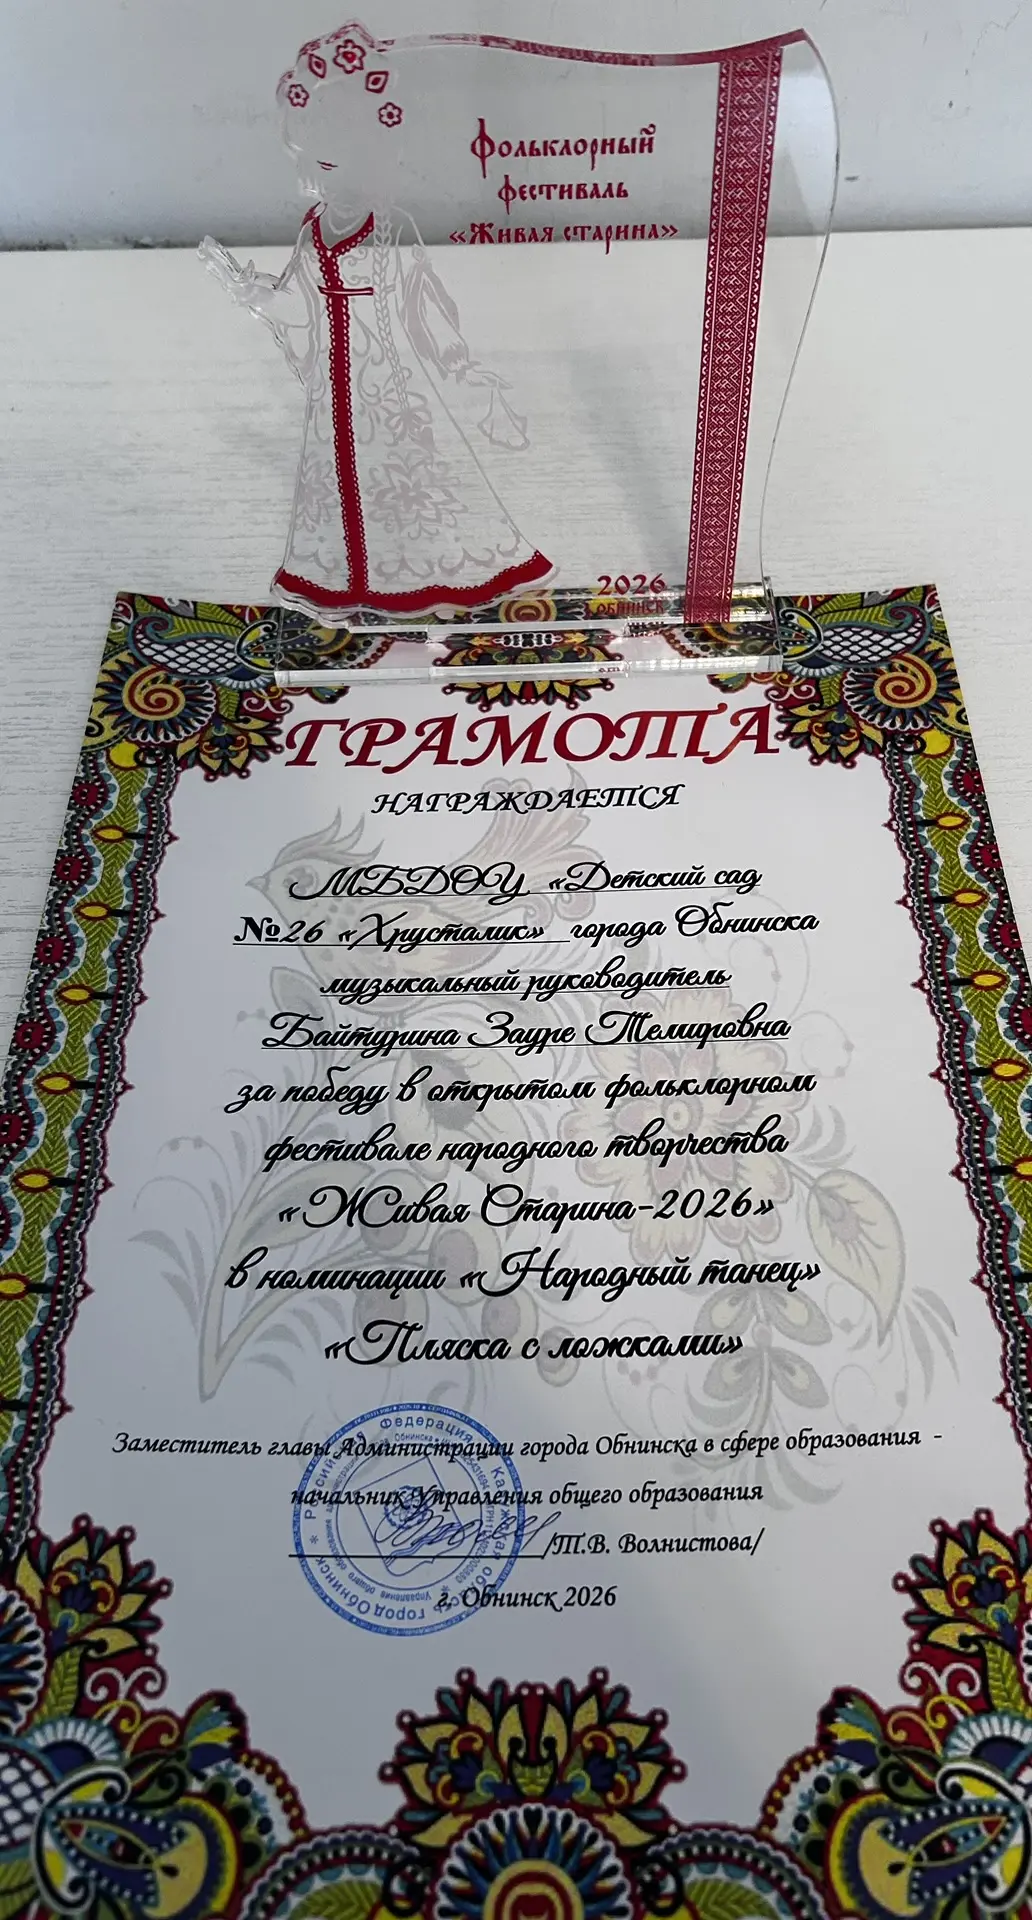 Фольклорный
фестиваль
«Живая старина»
2026
ОБНИНСК
ГРАМОТА
НАГРАЖДАЕТСЯ
МБДОУ «Детский сад
№26 «Хрусталик» города Обнинска
музыкальный руководитель
Байтурина Зауре Темировна
за победу в открытом фольклорном
фестивале народного творчества
«Живая Старина-2026»
в номинации «Народный танец»
«Пляска с ложками»
Заместитель главы Администрации города Обнинска в сфере образования -
начальник Управления общего образования
/Т.В. Волнистова/
г. Обнинск 2026
Российская Федерация Калужская область город Обнинск
Управление общего образования